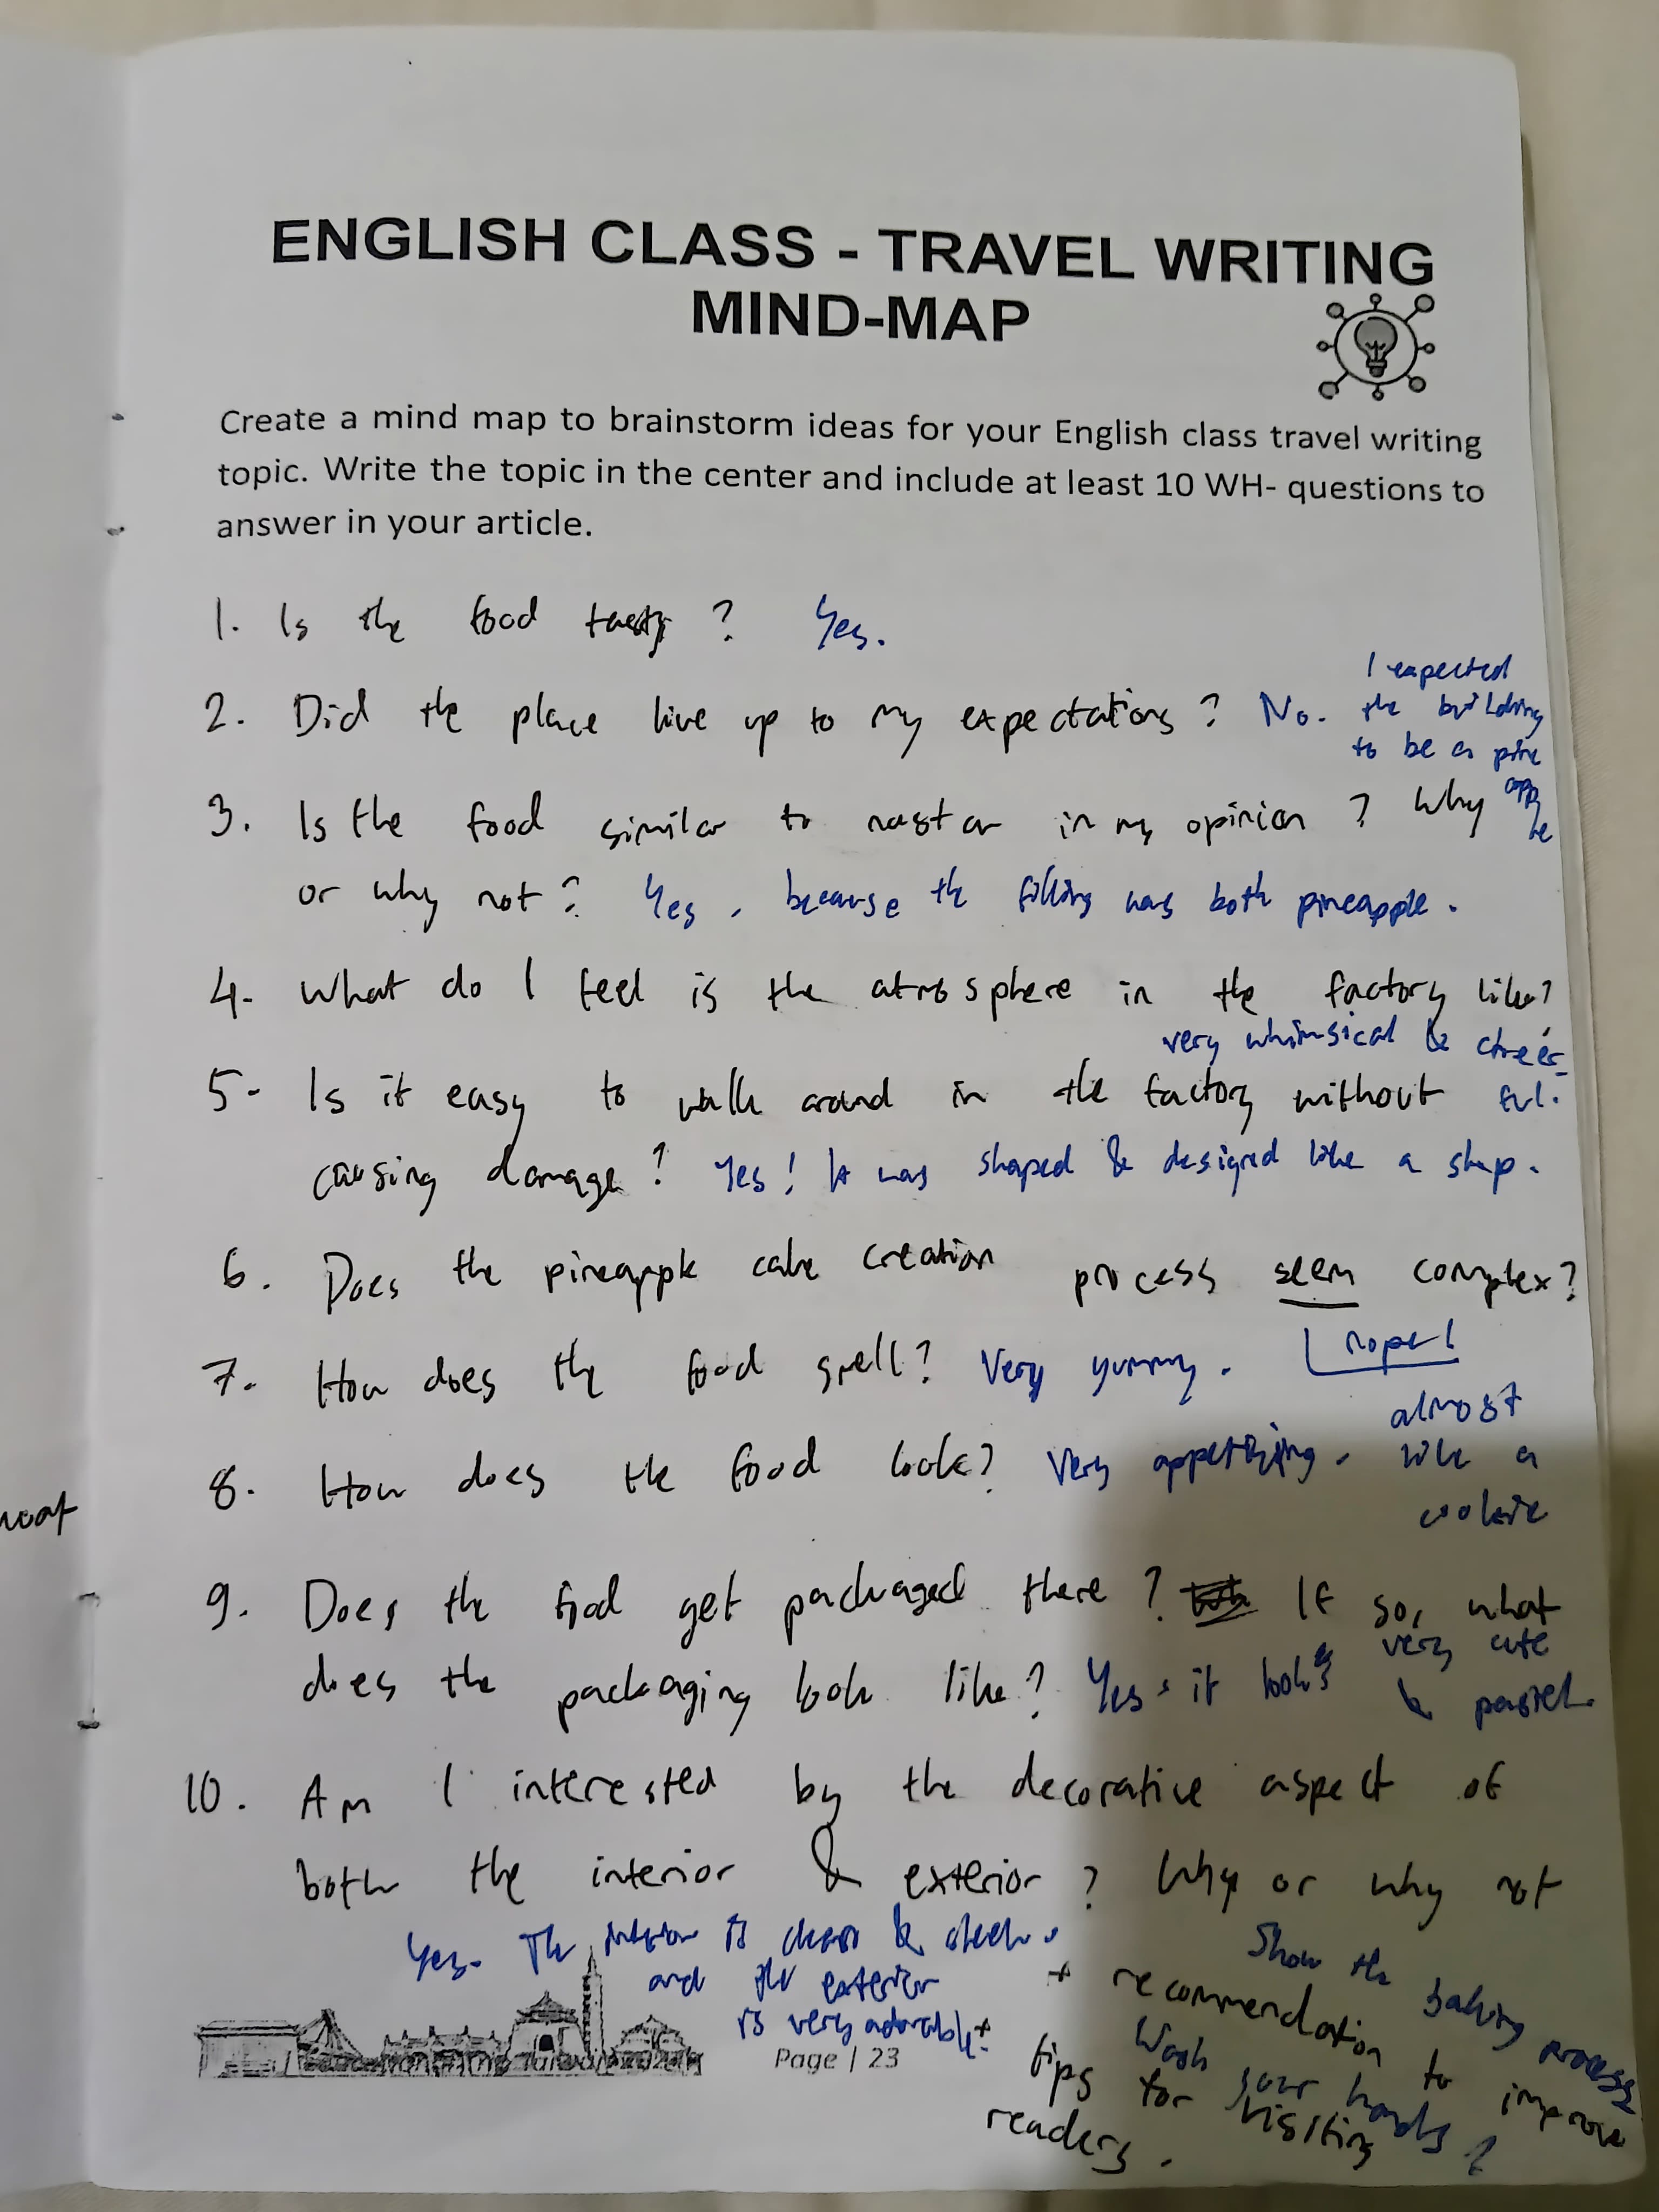 ENGLISH CLASS - TRAVEL WRITING
MIND-MAP
Create a mind map to brainstorm ideas for your English class travel writing
topic. Write the topic in the center and include at least 10 WH- questions to
answer in your article.
1. Is the food tasty? Yes.
2. Did the place live up to my expectations? No.
I expected
the building
to be a pine
apple
3. Is the food similar to nastar in my opinion? Why
or why not? Yes, because the filling was both pineapple.
4. What do I feel is the atmosphere in the factory like?
very whimsical & cheer-
ful.
5. Is it easy to walk around in the factory without
causing damage? Yes! It was shaped & designed like a shop.
6. Does the pineapple cake creation process seem complex?
nope!
7. How does the food smell? Very yummy.
8. How does the food look? Very appetizing.
almost
like a
cookie
9. Does the food get packaged there? If so, what
does the packaging look like? Yes, it looks
very cute
& pastel.
10. Am I interested by the decorative aspect of
both the interior & exterior? Why or why not
Yes. The interior is clean & sleek,
and the exterior
is very adorable
+ recommendation to improve
Show the baking process
+ tips for visiting
readers.
Wash your hands!
Page | 23